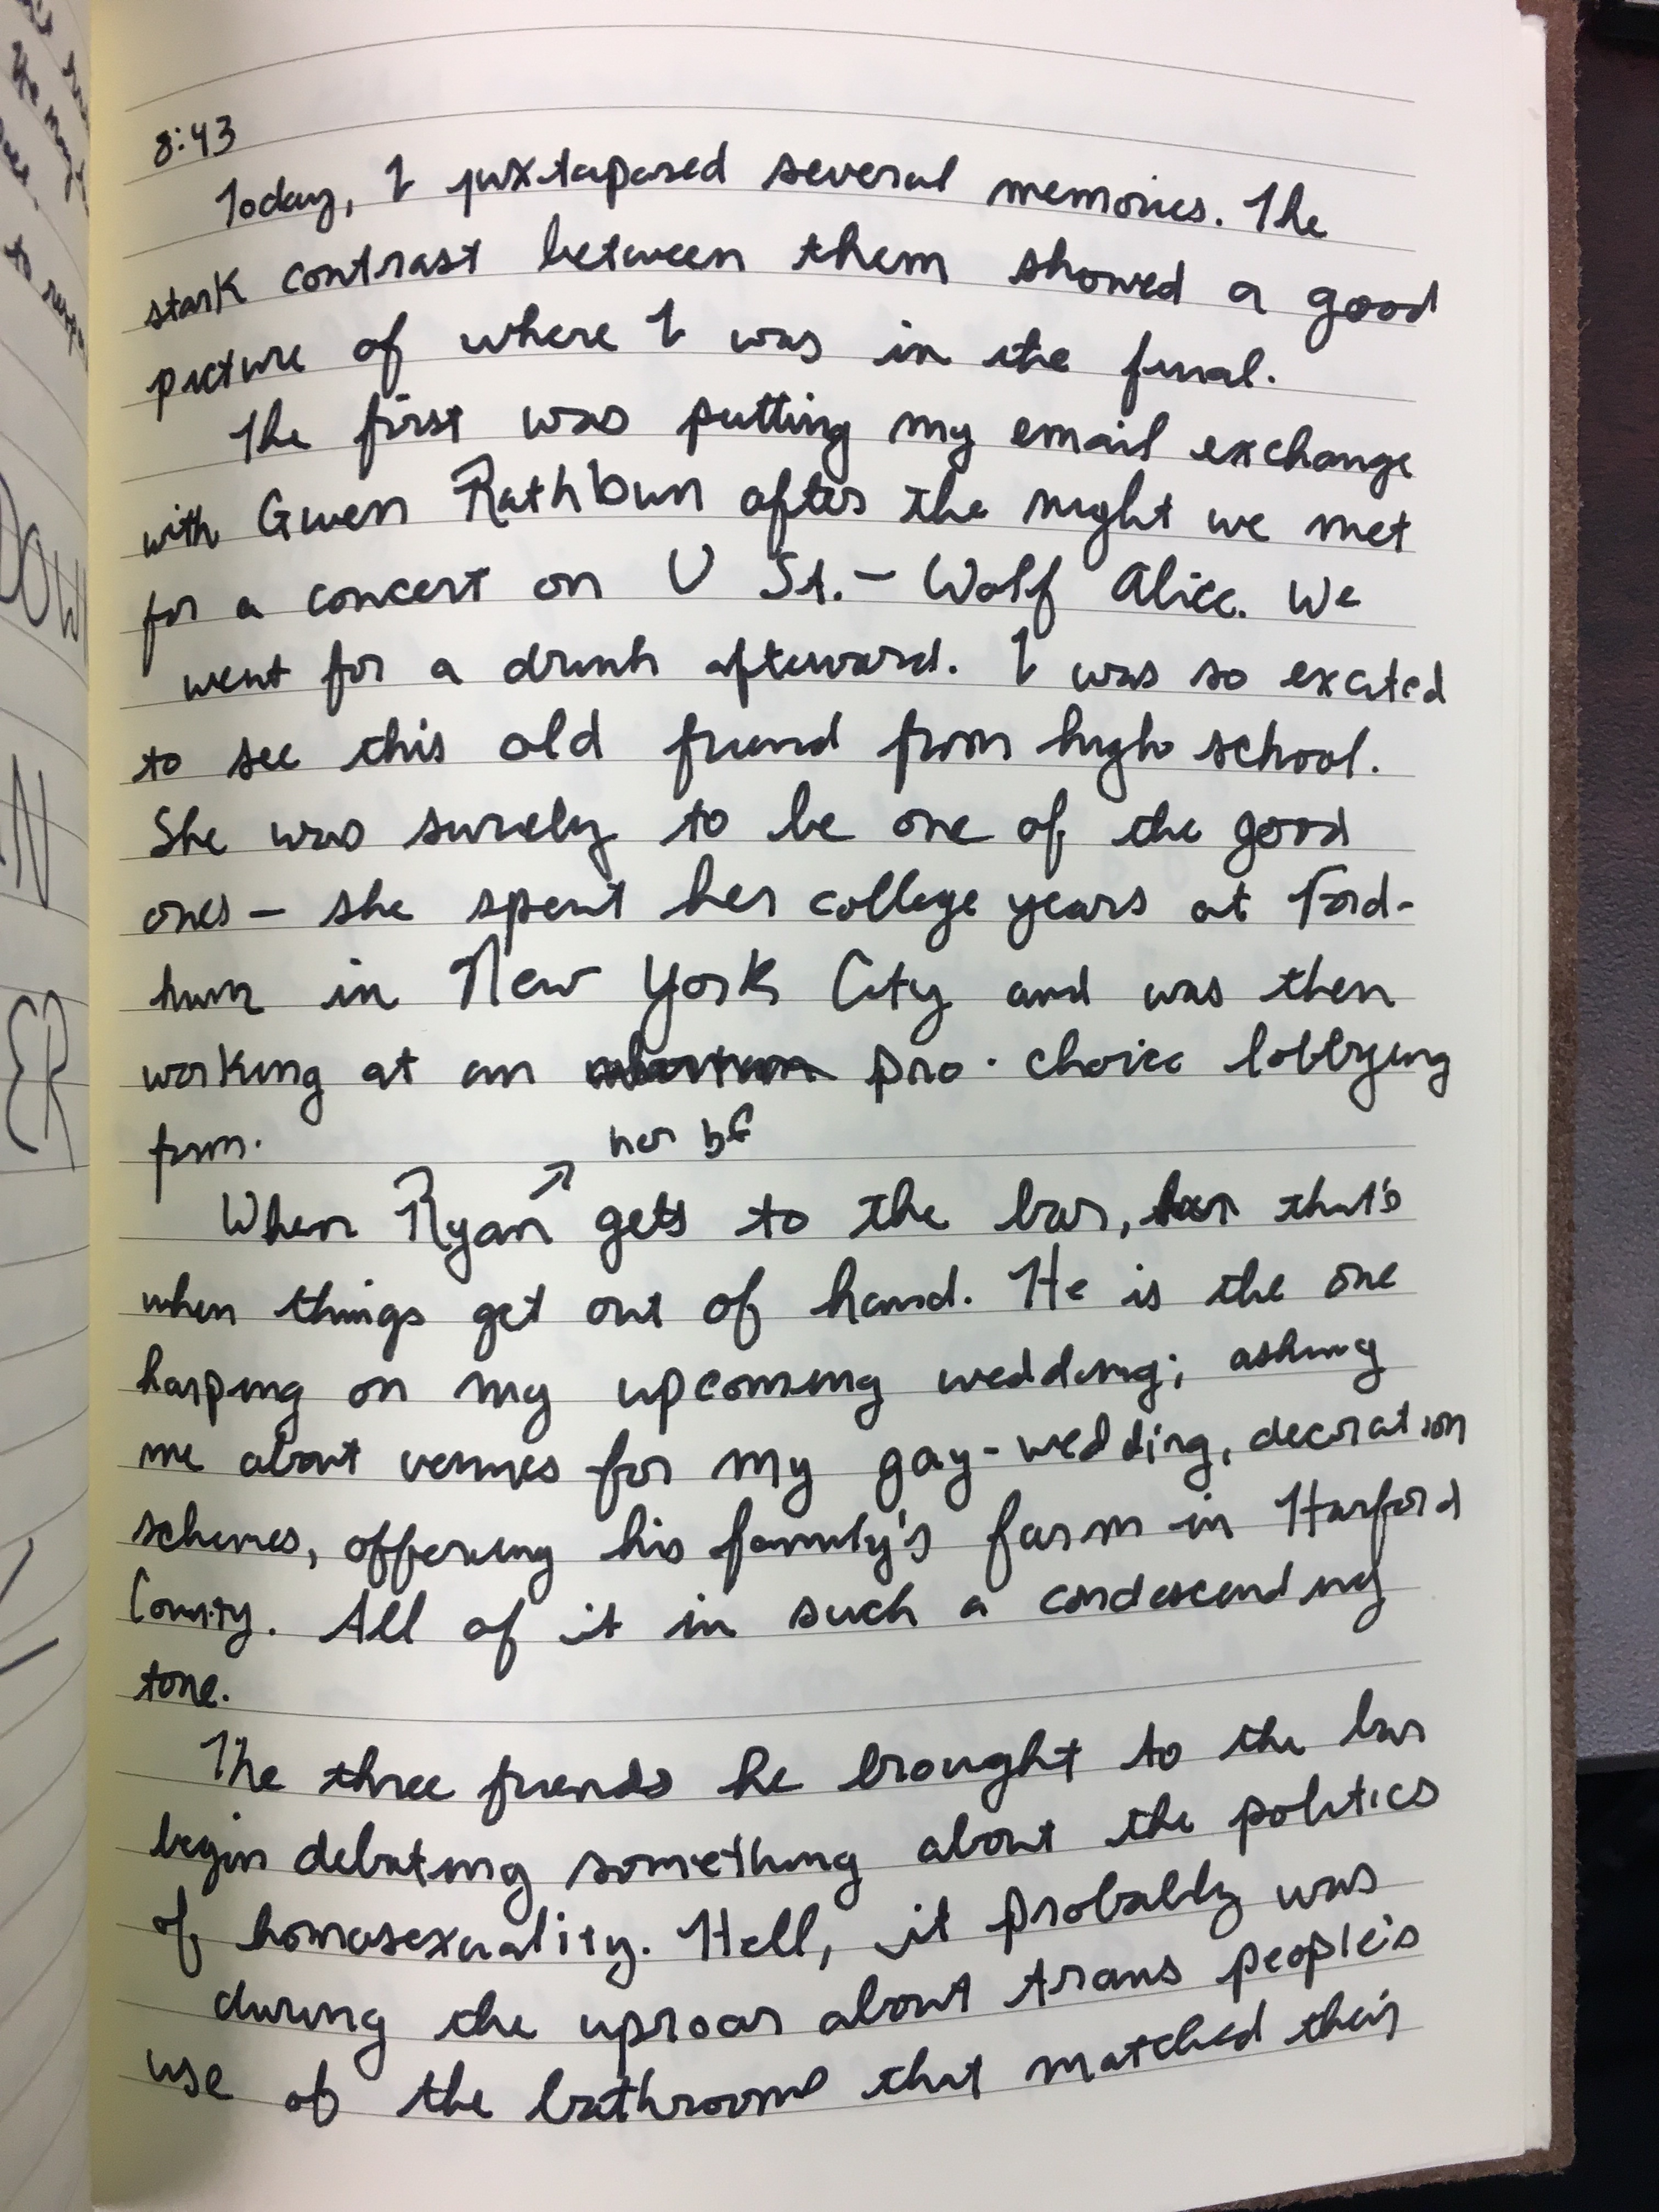 8:43
Today, I juxtaposed several memories. The
stark contrast between them showed a good
picture of where I was in the final.
The first was putting my email exchange
with Gwen Rathbun after the night we met
for a concert on U St. – Wolf Alice. We
went for a drink afterward. I was so excited
to see this old friend from high school.
She was surely to be one of the good
ones – she spent her college years at Ford-
ham in New York City and was then
working at an abortion pro-choice lobbying
firm.
her bf
When Ryan ↗ gets to the bar, her that's
when things get out of hand. He is the one
harping on my upcoming wedding; asking
me about venues for my gay-wedding, decoration
schemes, offering his family's farm in Harford
County. All of it in such a condescending
tone.
The three friends he brought to the bar
begin debating something about the politics
of homosexuality. Hell, it probably was
during the uproar about trans people's
use of the bathroom that matched their
DOW
ER
to
my